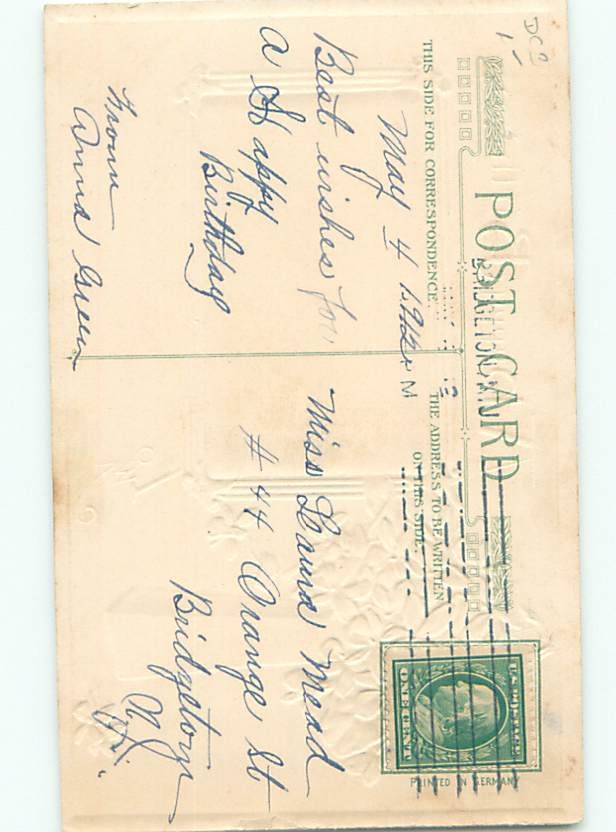 DC9
1-
POST CARD
THIS SIDE FOR CORRESPONDENCE.
THE ADDRESS TO BE WRITTEN
ON THIS SIDE.
BRIDGETON, N.J.
M
May 4 1912
Best wishes for
a Happy
Birthday
From
Anna Green
Miss Laura Mead
# 44 Orange St
Bridgeton
N.J.
U.S. POSTAGE
ONE CENT
PRINTED IN GERMANY